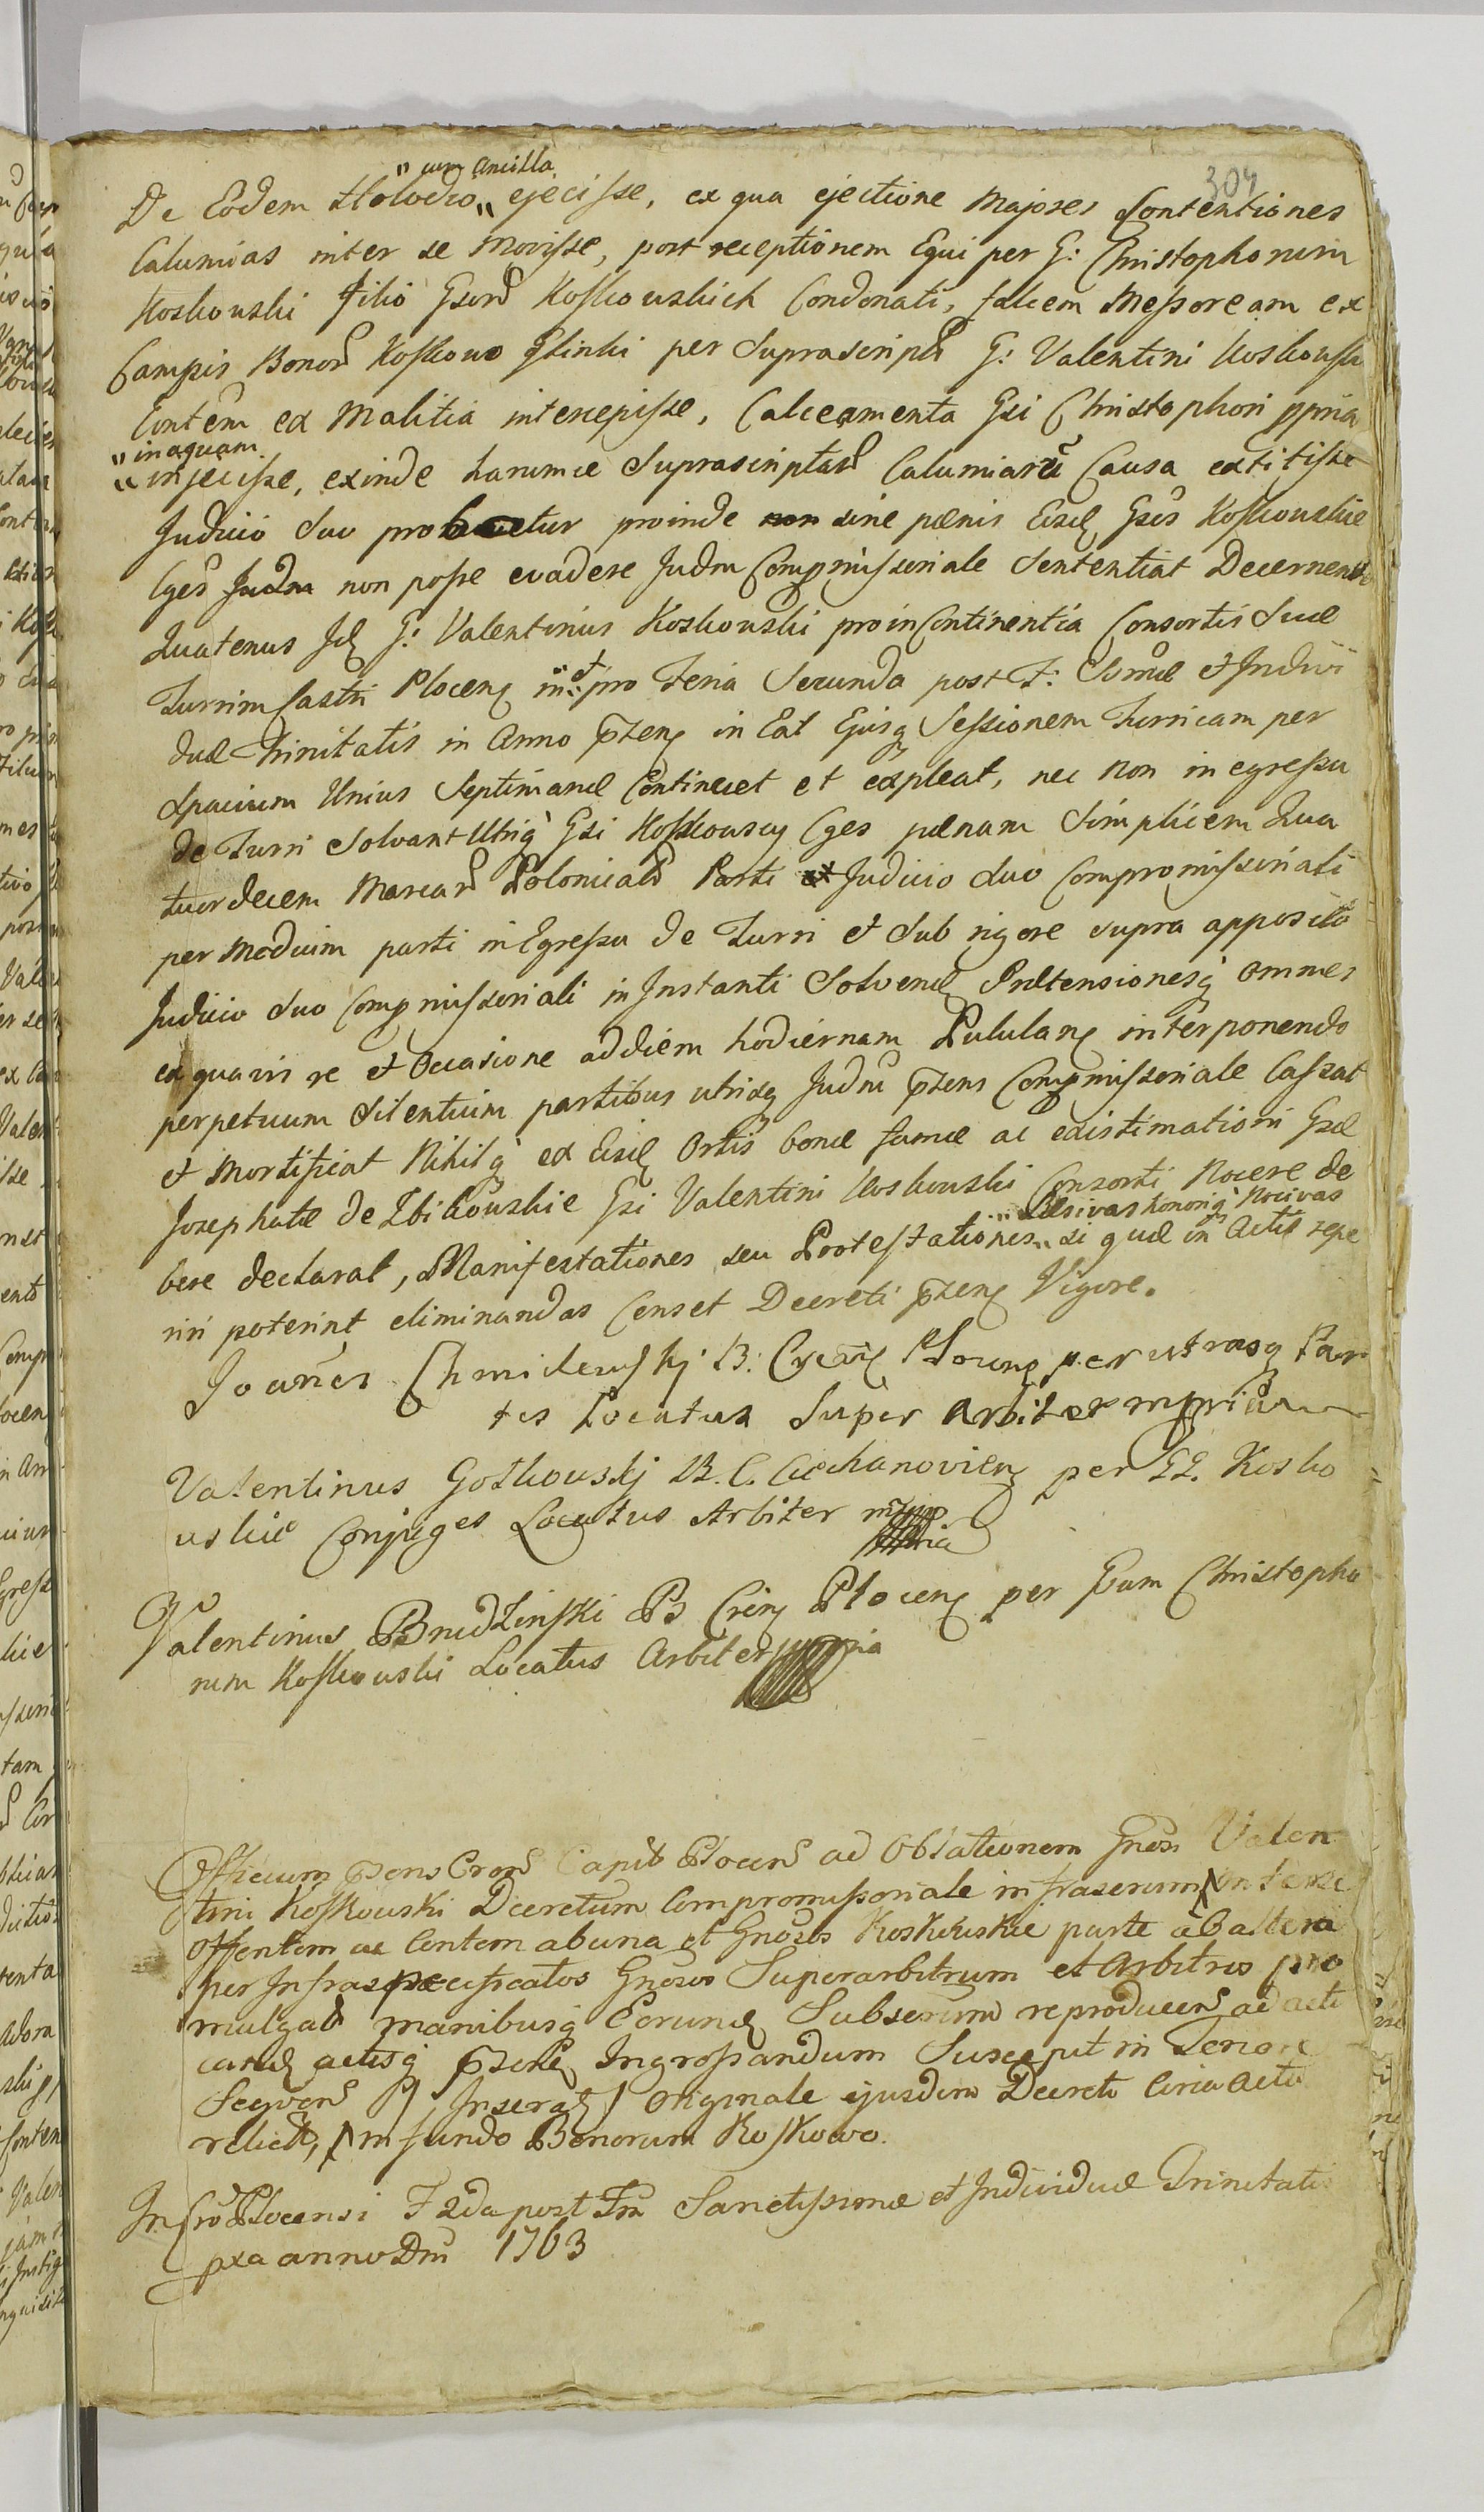 304
" cum Ancilla
De Eodem Holodro " ejecisse, ex qua ejectione Majores Contentiones
Calumias inter se Movisse, post receptionem Equi per G: Christophorum
Koskowski Filio Gsord Koskowskich Condonati, falcem Messoream ex
Campis Bonor Koskowo Glinki per Suprascript G: Valentini Koskowski
Contem ex Malitia intercepisse, Calceamenta Gsi Christophori ppria
" in aquam
" injecisse, exinde harumce Suprascriptar Calumiarũ Causa extitisse
Judicio Suo probaretur proinde sine pænis Eisd Gsos Koskowskie
Cges non posse evadere Judm Compmissoriale Sententiat Decernendo
Quatenus Id G: Valentinus Koskowski pro incontinentia Consortis Suæ
Turrim Castri Plocen in et pro Feria Secunda post F: Ssmæ et Indivi
duæ Trinitatis in Anno pzen in Eat Ejusq Sessionem Turricam per
Spacium Unius Septimanæ Contineet et expleat, nec non in egressu
de Turri Solvant Utriq Gsi Koskowscy Cges pænam Simplicem Qua
tuordecem Marcar Polonicalr Parti et Judicio Suo Compromissoriali
per Medium parti in Egressu de Turri et Sub rigore supra apposito
Judicio Suo Compmissoriali in Instanti Solvend Prætensionesq ommes
ex quavis re et Occasione ad diem hodiernam Pululan interponendo
perpetuum Silentium partibus utrisq Judm pzens Compmissoriale Cassat
et Mortificat Nihilq ex Eisd Ortis bonæ famæ ac existimationi Gsæ
Josephatæ de Zbikowskie Gsi Valentini Koskowski Consorti Nocere de
" Læsivas honoriq Nocivas
bere declarat, Manifestationes seu Protestationes " si quæ in Actis repe
riri poterint eliminandas Censet Decreti pzen Vigore.
Joañes Chmielewskj B: Plocen per utrasq Par
tes Locatus Super Arbiter mppria
Valentinus Gotkowskj B. C. Ciechanovien per GG. Kosko
wskie Conjuges Locatus Arbiter mppria
Valentinus Brudzinski B Cren Plocen per Gsum Christopho
rum Koskowski Locatus Arbiter mppria
Officium pzens Crens Capit Plocens ad Oblationem Gnosi Valen
tini Koskowski Decretum Compromissoriale infrascrium inter se
Offentem ac Contem ab una et Gnosos Koskowskie parte ab altera
per Infraspecificatos Gnosos Superarbitrum et Arbitros pro
mulgat manibusq Eorund Subscrium reproducens ad acti
cand actisq pzend Ingrossandum Suscepit in Tenore
Sequen // Inserat // Originale ejusdem Decreti Circa Acta
relict, // in fundo Bonorum Koskowo.
In Cro Plocensi F 2da post Fm Sanctissimæ et Individuæ Trinitatis
pxa anno Dni 1763